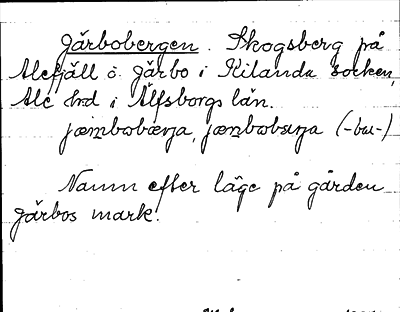 Gärbobergen. Skogsberg på
Alefjäll ö. Gärbo i Kilanda socken,
Ale hd i Älfsborgs län.
Namn efter läge på gården
Gärbos mark.